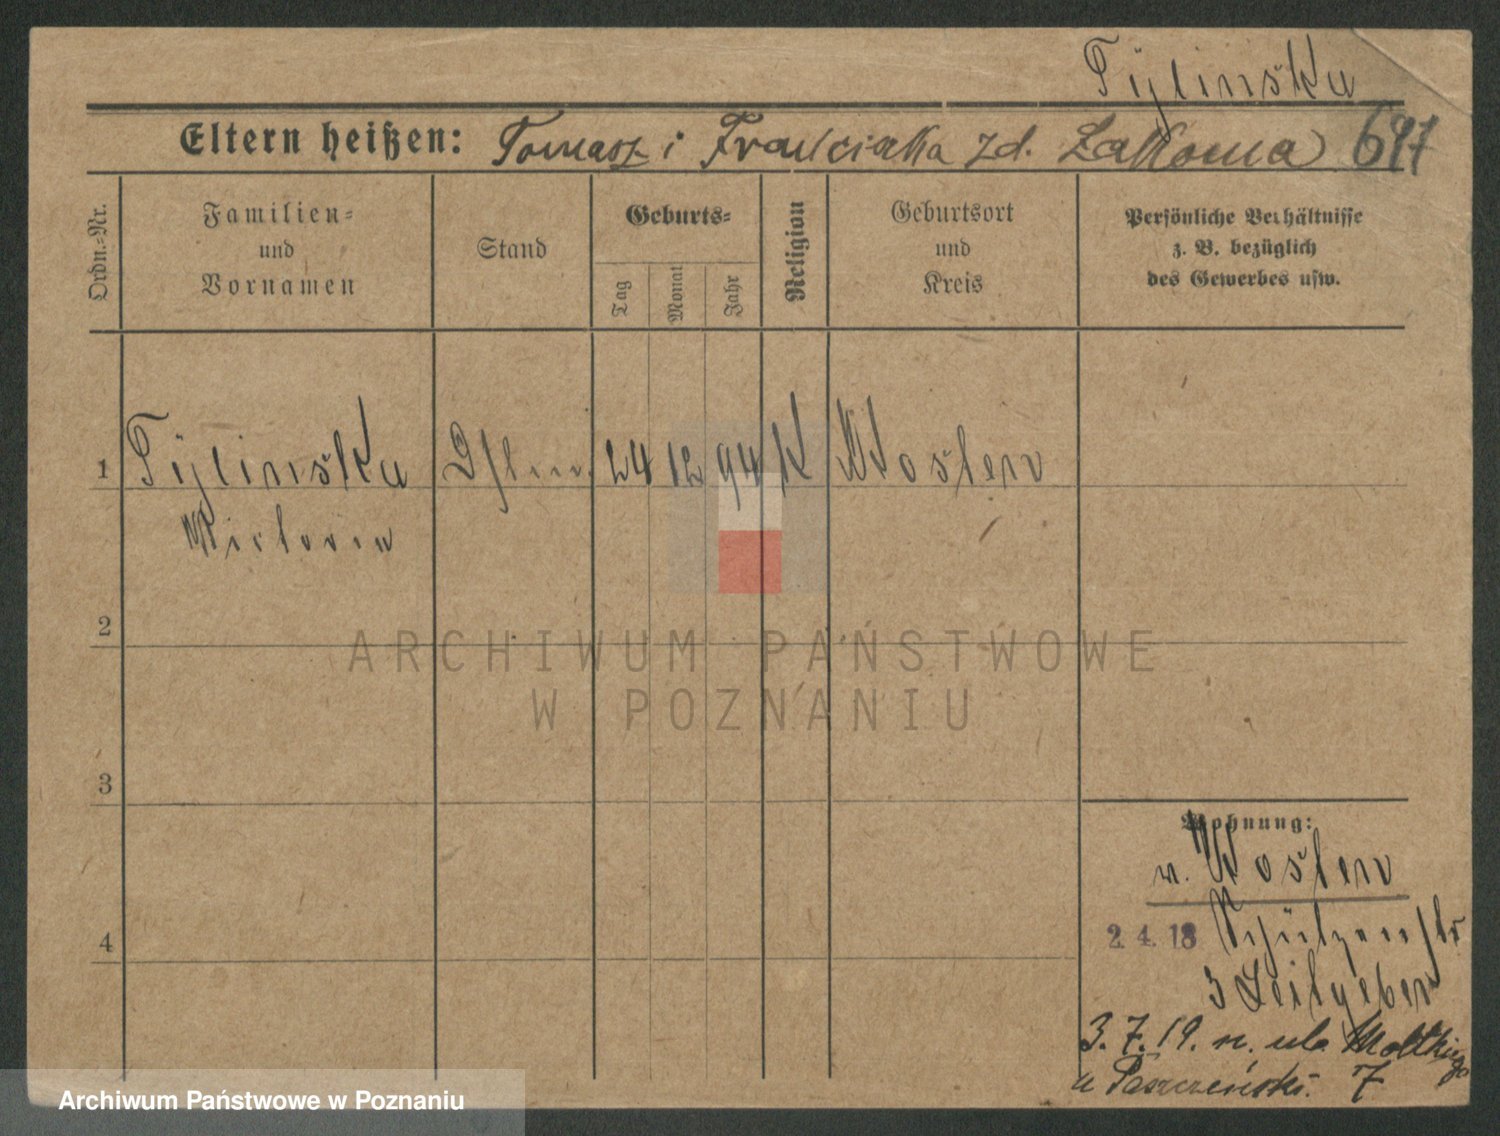 Pijlinska
Eltern heißen: Tomasz i Franciszka zd. Lakoma 697
Ordn.-Nr.
Familien-
und
Vornamen
Stand
Geburts-
Tag
Monat
Jahr
Religion
Geburtsort
und
Kreis
Persönliche Verhältnisse
z. B. bezüglich
des Gewerbes usw.
1 Pijlinska 24 12 94 K Kosten
Victoria
2
3
4
Wohnung:
v. Kosten
2. 4. 18 Schützenstr
3 Leitgeber
3. 7. 19. n. ul. Moltkiego
u 7
ARCHIWUM PAŃSTWOWE
W POZNANIU
Archiwum Państwowe w Poznaniu